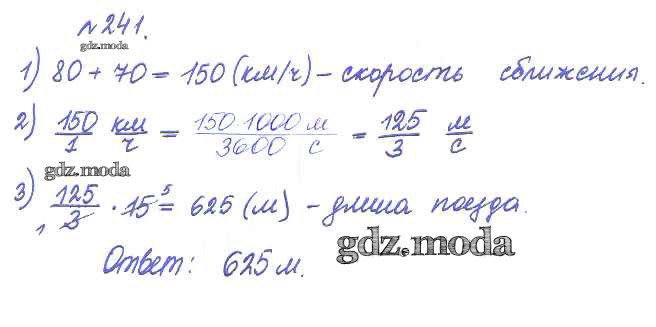 №241.
gdz.moda
1) 80 + 70 = 150 (км/ч) – скорость сближения.
2) 150/1 км/ч = 150·1000 м/3600 с = 125/3 м/с
gdz.moda
3) 125/3 · 15 = 625 (м) – длина поезда.
1 5
Ответ: 625 м.
gdz.moda